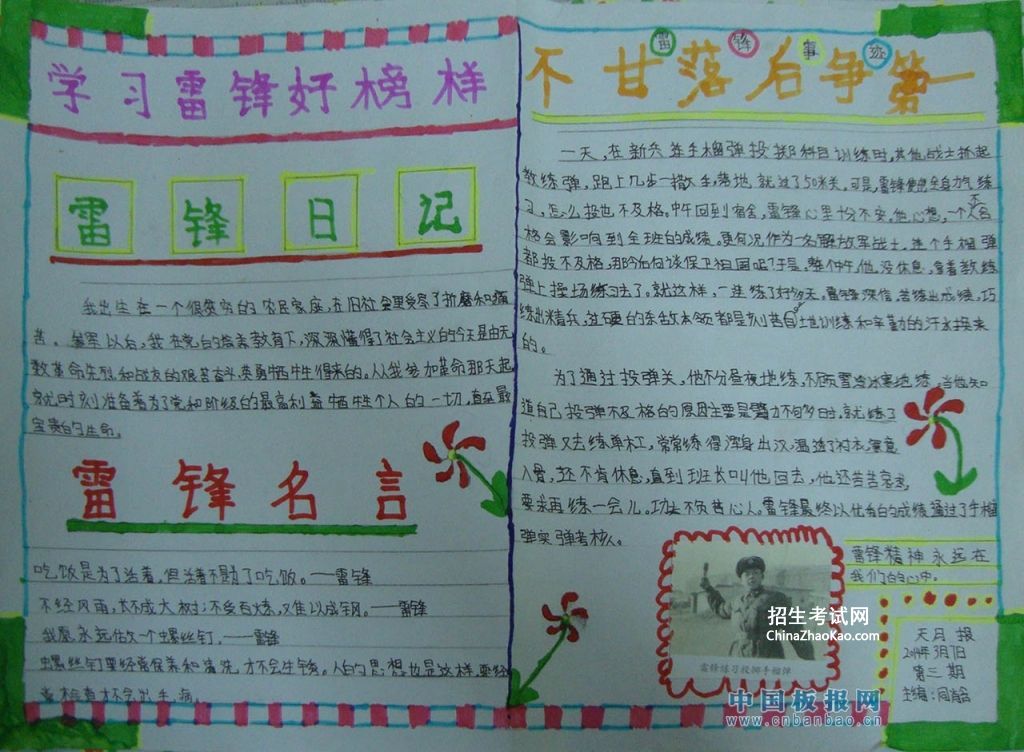 学习雷锋好榜样
雷锋日记
我出生在一个很贫穷的农民家庭,在旧社会里受尽了折磨和痛
苦。参军以后,我在党的培养教育下,深深懂得了社会主义的今天是由无
数革命先烈和战友的艰苦奋斗,英勇牺牲得来的。从我参加革命那天起
就时刻准备着为了党和阶级的最高利益牺牲个人的一切,直至最
宝贵的生命。
雷锋名言
吃饭是为了活着,但活着不是为了吃饭。——雷锋
不经风雨,长不成大树;不受百炼,难以成钢。——雷锋
我愿永远做一个螺丝钉。——雷锋
螺丝钉要经常保养和清洗,才不会生锈。人的思想也是这样,要经
常检查才不会出毛病。
雷锋事迹
不甘落后争第一
一天,在新兵连手榴弹投掷科目训练时,其他战士抓起
教练弹,跑上几步一撒手,落地就过了50米关。可是,雷锋使出全身力气练
习,怎么投也不及格。中午回到宿舍,雷锋心里十分不安,他心想,一个人不合
格会影响到全班的成绩。更何况,作为一名解放军战士,连个手榴弹
都投不及格,那今后何谈保卫祖国呢?于是,整个中午他没休息,拿着教练
弹上操场练习去了。就这样,一连练了好多天。雷锋深信,苦练出成绩,巧
练出精兵,过硬的杀敌本领都是刻苦自地训练和辛勤的汗水换来
的。
为了通过投弹关,他不分昼夜地练,不顾雪冷冰寒地练。当他知
道自己投弹不及格的原因主要是臂力不够时,就练了
投弹又去练单杠,常常练得浑身出汗,湿透了衬衣,寒意
入骨,还不肯休息,直到班长叫他回去,他还苦苦哀求,
要求再练一会儿。功夫不负苦心人。雷锋最终以优秀的成绩通过了手榴
弹实弹考核。
雷锋精神永远在
我们的心中。
雷锋练习投掷手榴弹
招生考试网
ChinaZhaoKao.com
天月报
2014年3月7日
第三期
主编:
中国板报网
www.cnbanbao.cn